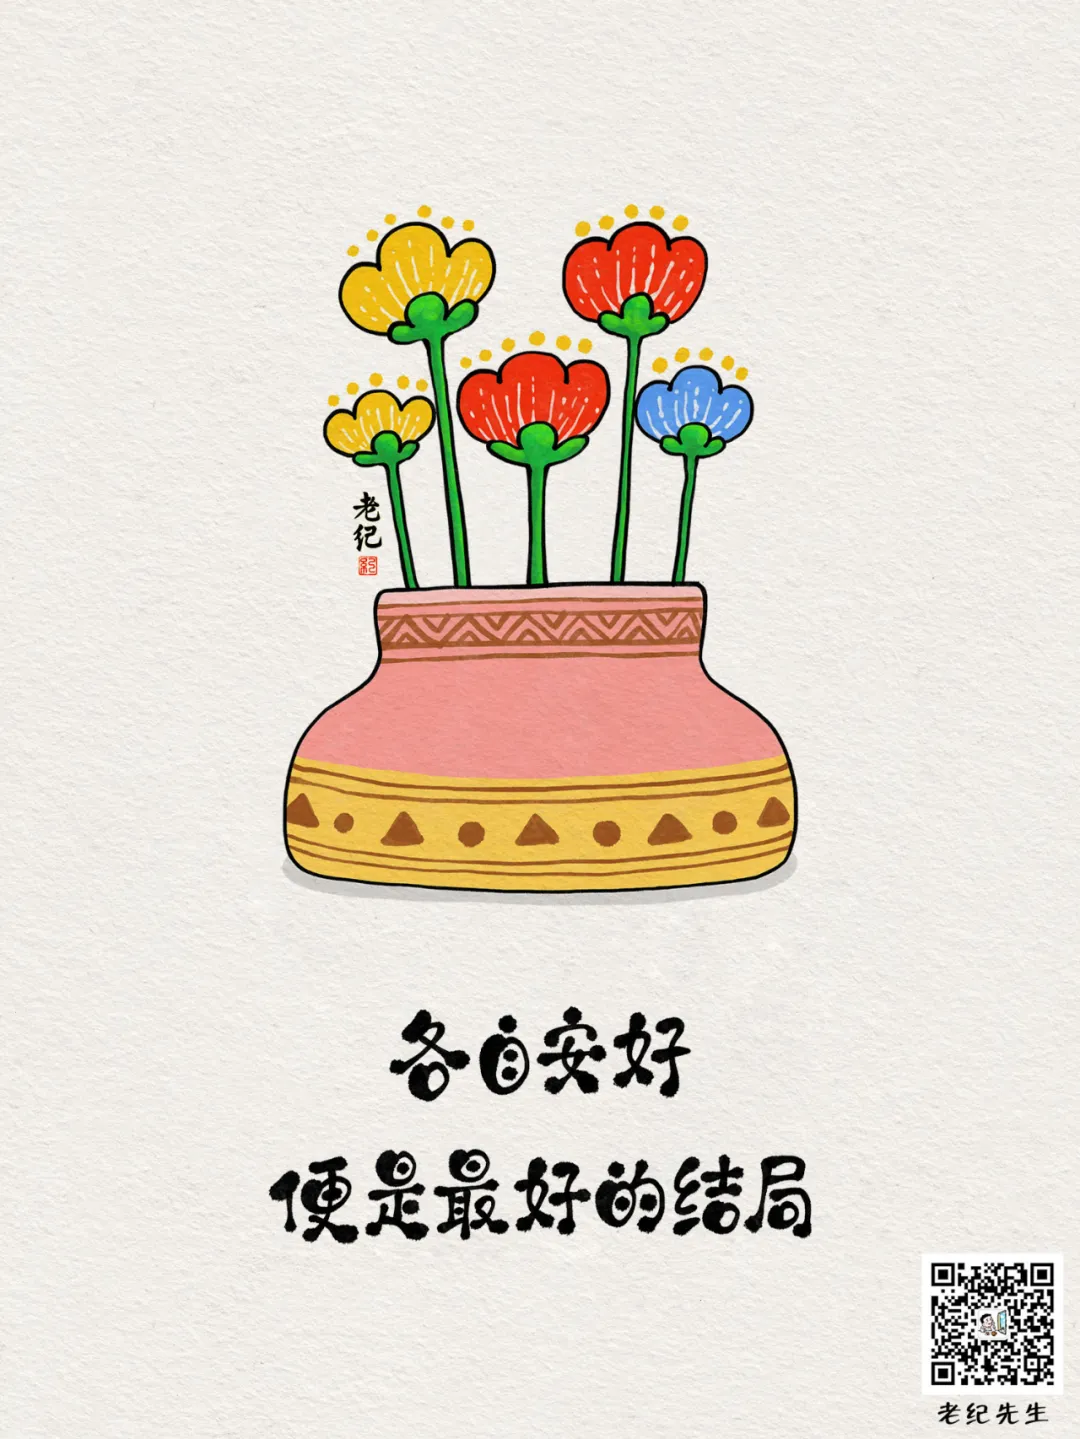 老纪
紀
各自安好
便是最好的结局
老纪先生